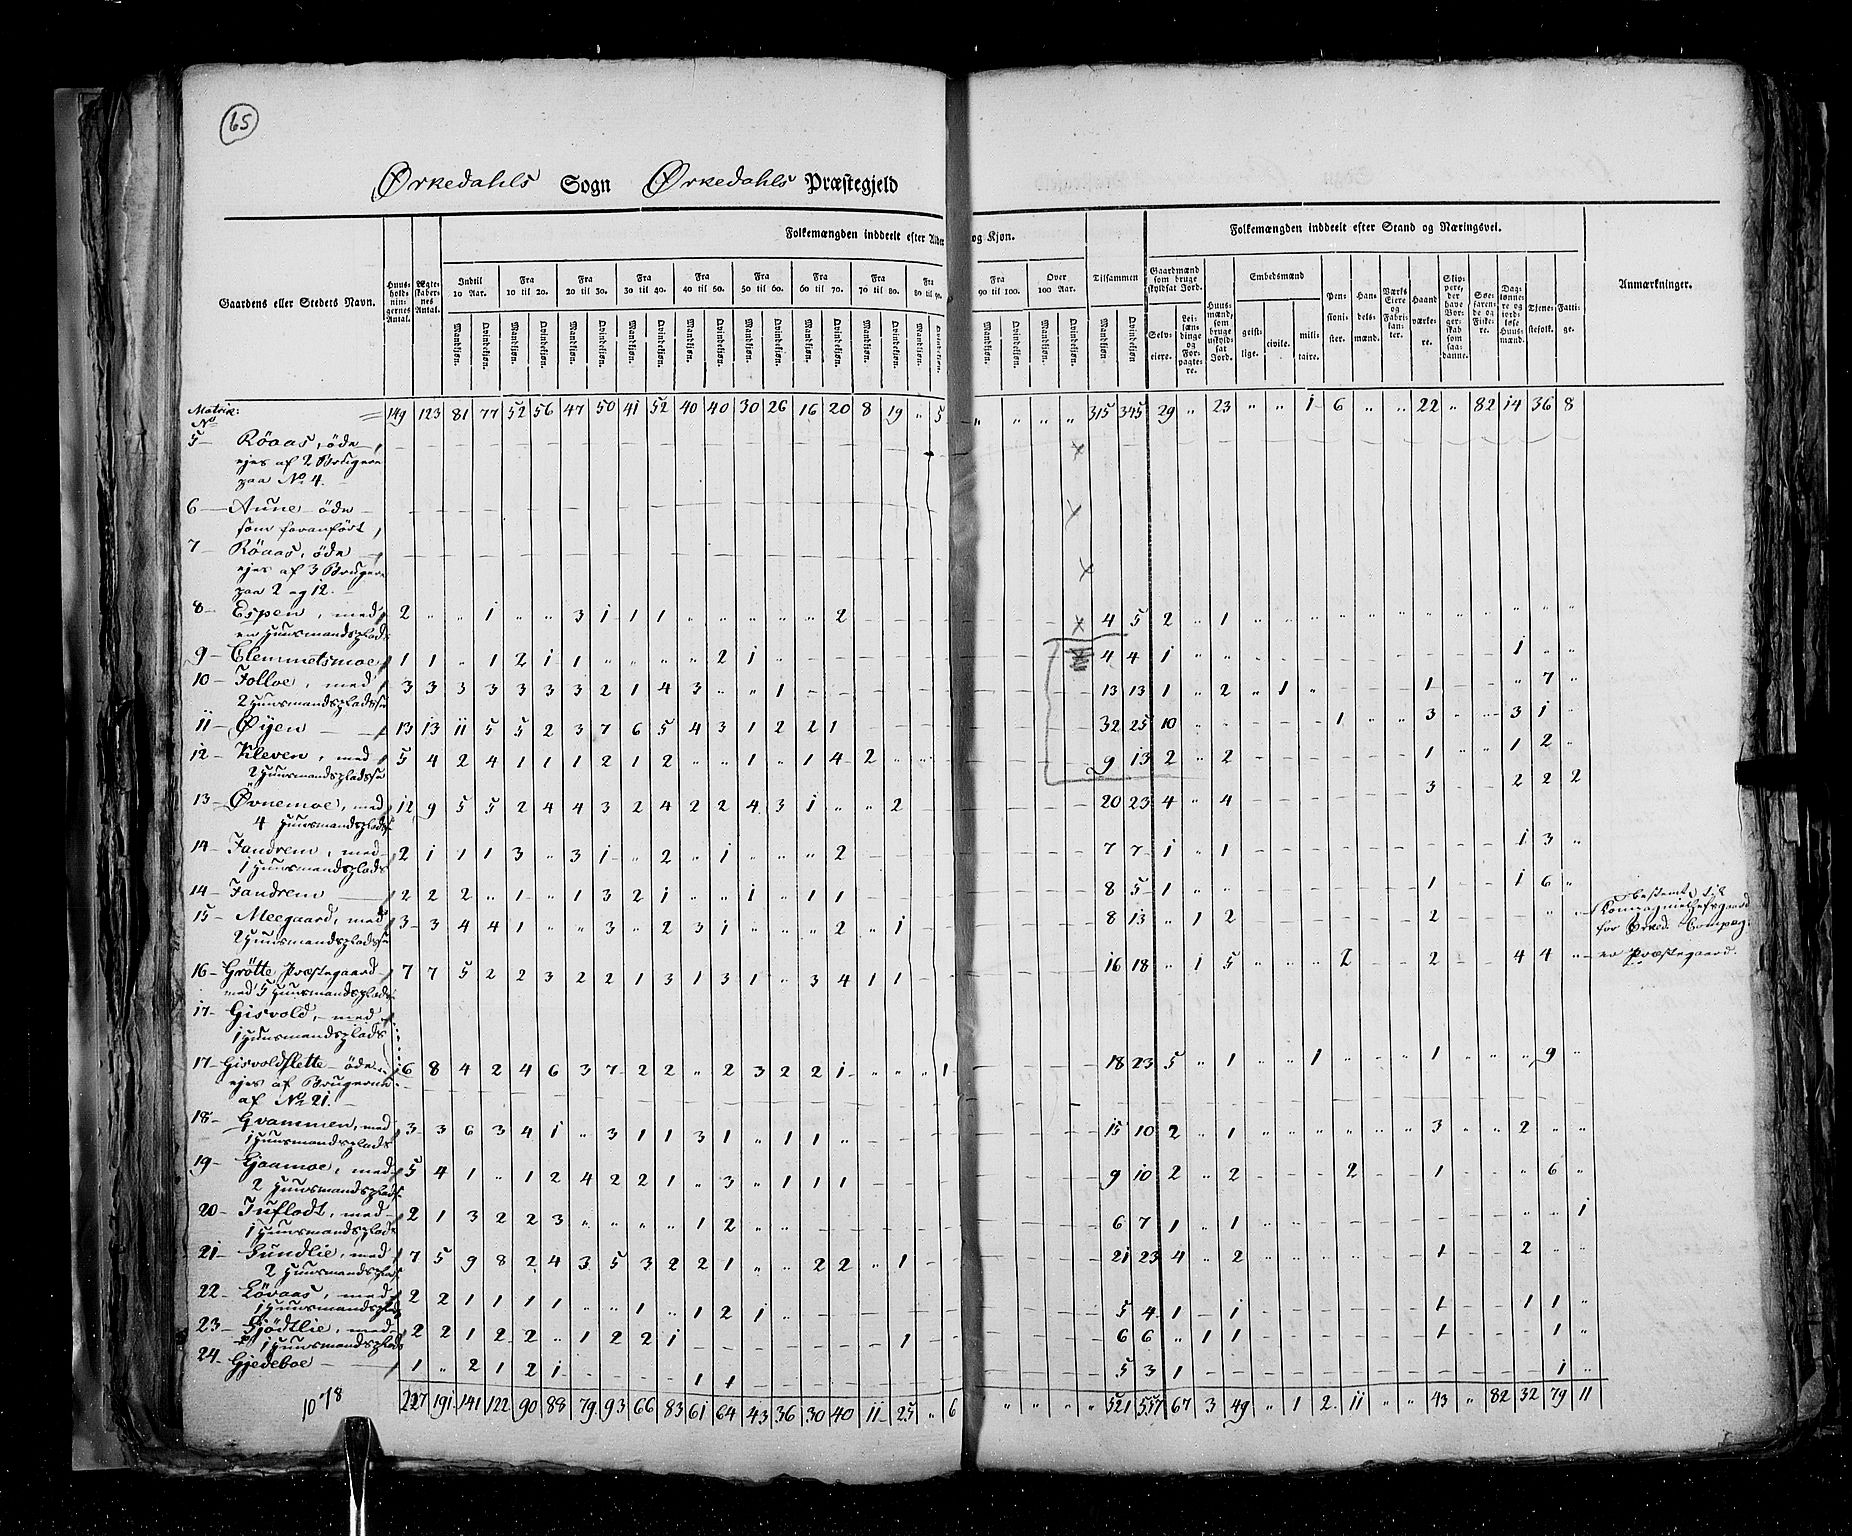 65
Ørkedahls Sogn Ørkedahls Præstegjeld
Folkemængden inddeelt efter Alder og Kjøn.
Folkemængden inddeelt efter Stand og Næringsvei.
Gaardens eller Stedets Navn.
Huus-holdnin-gernes Antal.
Ægte-skaber-nes Antal.
Indtil 10 Aar.
Fra 10 til 20.
Fra 20 til 30.
Fra 30 til 40.
Fra 40 til 50.
Fra 50 til 60.
Fra 60 til 70.
Fra 70 til 80.
Fra 80 til 90.
Fra 90 til 100.
Over 100 Aar.
Tilsammen
Mandkjøn. Qvindekjøn.
Gaardmænd som bruge skyldsat Jord.
Selv-eiere.
Lei-lændinge og For-pagte-re.
Huus-mænd, som bruge uskyld-sat Jord.
Embedsmænd
geist-lige. civile. mili-taire.
Pen-sioni-ster.
Han-dels-mænd.
Værks Eiere og Fabri-kan-ter.
Haand-værke-re.
Skip-pere, der have Bor-ger-skab som saa-danne.
Søe-faren-de og Fiske-re.
Dag-lønne-re og jord-løse Huus-mænd.
Tjene-stefolk.
Fatti-ge.
Anmærkninger.
Matrik: No
149 123 81 77 52 56 47 50 41 52 40 40 30 26 16 20 8 19 „ 5 „ „ „ „ 315 345 29 „ 23 „ „ 1 6 „ „ 22 „ 82 14 36 8
5 — Röaas, öde
ejes af 2 Brugere
paa No 4.
6 — Aune — öde
som foranfört
7 — Röaas, öde
ejes af 3 Brugere
paa 2 og 12.
8 — Espen, med 2 „ „ 1 „ „ 3 1 1 1 „ „ „ „ „ 2 4 5 2 „ 1
en Huusmandsplads
9 — Clemmetsmoe 1 1 „ 1 2 1 1 „ „ „ „ 2 1 4 4 1 1 „ „
10 — Folloe, med 3 3 3 3 3 3 3 2 1 4 3 „ „ 1 13 13 1 „ 2 „ 1 „ 1 „ 7 „
2 Huusmandspladse
11 — Øyen 13 13 11 5 5 2 3 7 6 5 4 3 1 2 2 1 32 25 10 1 3 3 1 „
12 — Kleven, med 5 4 2 4 1 1 1 2 1 2 „ „ 1 „ 1 4 2 9 13 2 „ 2 1 1 2 „
2 Huusmandspladse
13 — Øvnemoe, med 12 9 5 5 2 4 4 3 2 4 2 2 4 3 1 „ „ 2 20 23 4 „ 4 3 2 2 2
4 Huusmandspladse
14 — Fandrem, med 2 1 1 1 3 „ 3 1 „ 2 „ 1 „ „ „ 2 7 7 1 „ 1 1 3 „
1 Huusmandsplads
14 — Fandrem 2 2 2 „ 1 „ 1 3 2 1 „ „ 1 „ 1 1 8 5 1 1 1 6 „
15 — Meegaard, med 3 3 4 4 1 „ „ 3 „ 2 3 1 „ „ „ 2 „ 1 8 13 „ 1 2 2 „ „
2 Huusmandspladse
bestemt til
16 — Grötte Præstegaard 7 7 5 2 2 3 2 2 1 3 1 3 1 „ 3 4 1 1 16 18 „ 1 5 2 2 4 4 „ er Præstegaard.
med 5 Huusmandspladse
17 — Gisvold, — med
1 Huusmandsplads
17 — Gisvoldslette — öde 16 8 4 2 4 6 3 7 2 2 „ 2 3 2 2 1 „ „ „ 1 18 23 5 „ 1 „ „ 1 1 „ 9 „
ejes af Brugerne
af No 21.
18 — Gvammen, med 3 3 6 3 4 1 „ 3 1 1 3 1 „ 1 1 „ 15 10 2 „ 1 3 „ „ 2 „ „
1 Huusmandsplads
19 — Gjaamoe, med 5 4 1 „ 1 2 4 2 2 1 „ 3 „ 1 1 1 9 10 2 „ 2 2 1 „ 6 „
2 Huusmandspladse
20 — med 2 1 3 2 2 3 „ „ „ „ 1 2 „ „ 6 7 1 „ 1 „ „ 1
1 Huusmandsplads
21 — Sundlie, med 7 5 9 8 2 4 3 5 3 2 2 1 „ „ 2 2 „ 1 21 23 4 „ 2 1 2 „ „
2 Huusmandspladse
22 — Lövaas, med 2 2 1 1 1 1 „ „ 1 „ 1 2 1 5 4 1 1 1 1 1 „
1 Huusmandsplads
23 — Gjödtlie, med 2 2 1 2 2 „ 1 2 2 1 1 6 6 „ 1 1 1 1 „
1 Huusmandsplads
24 — Gjedeboe 1 „ 2 1 2 1 1 1 5 3 1 1 „
1078
227 191 141 122 90 88 79 93 66 83 61 64 43 36 30 40 11 25 „ 6 „ „ „ „ 521 557 67 3 49 „ 1 2 11 „ „ 43 „ 82 32 79 11